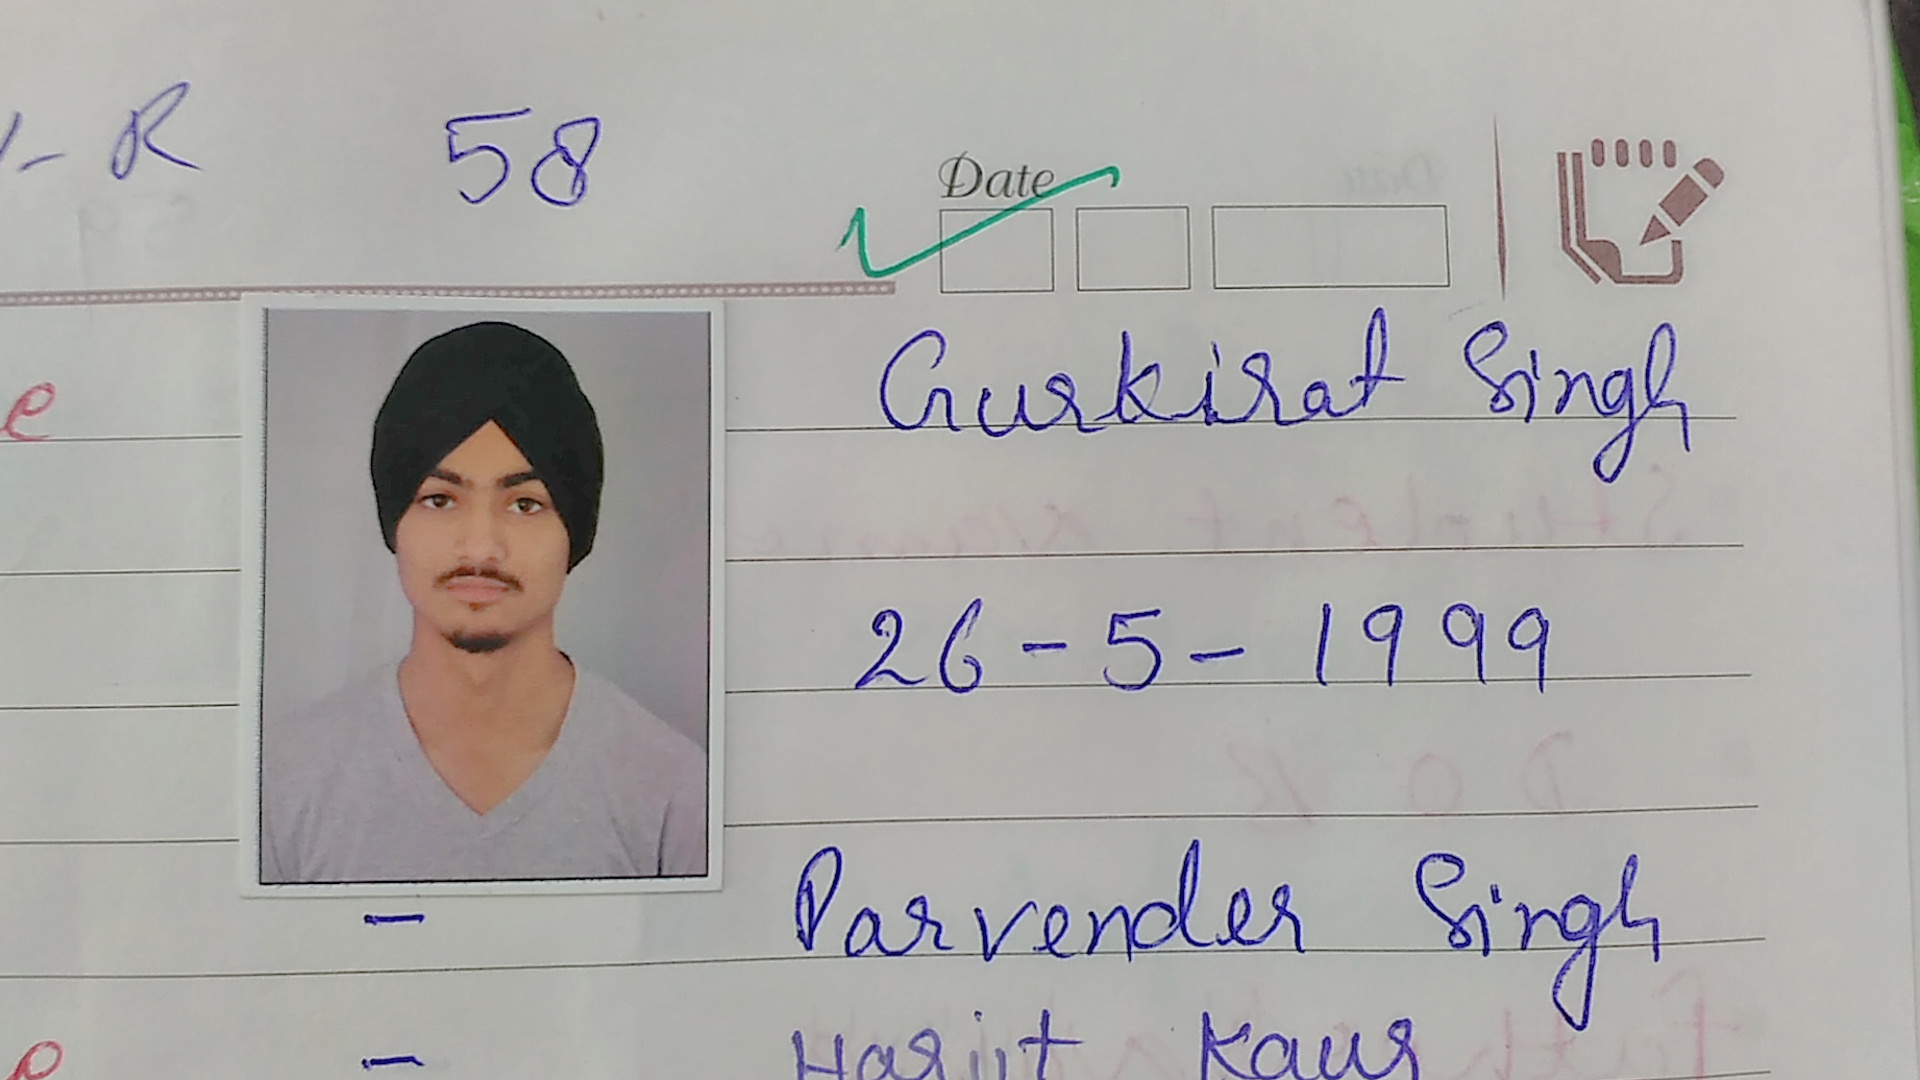 - R 58
Date
Gurkirat Singh
e
26-5-1999
Parvender Singh
-
Harjit Kaur
e -